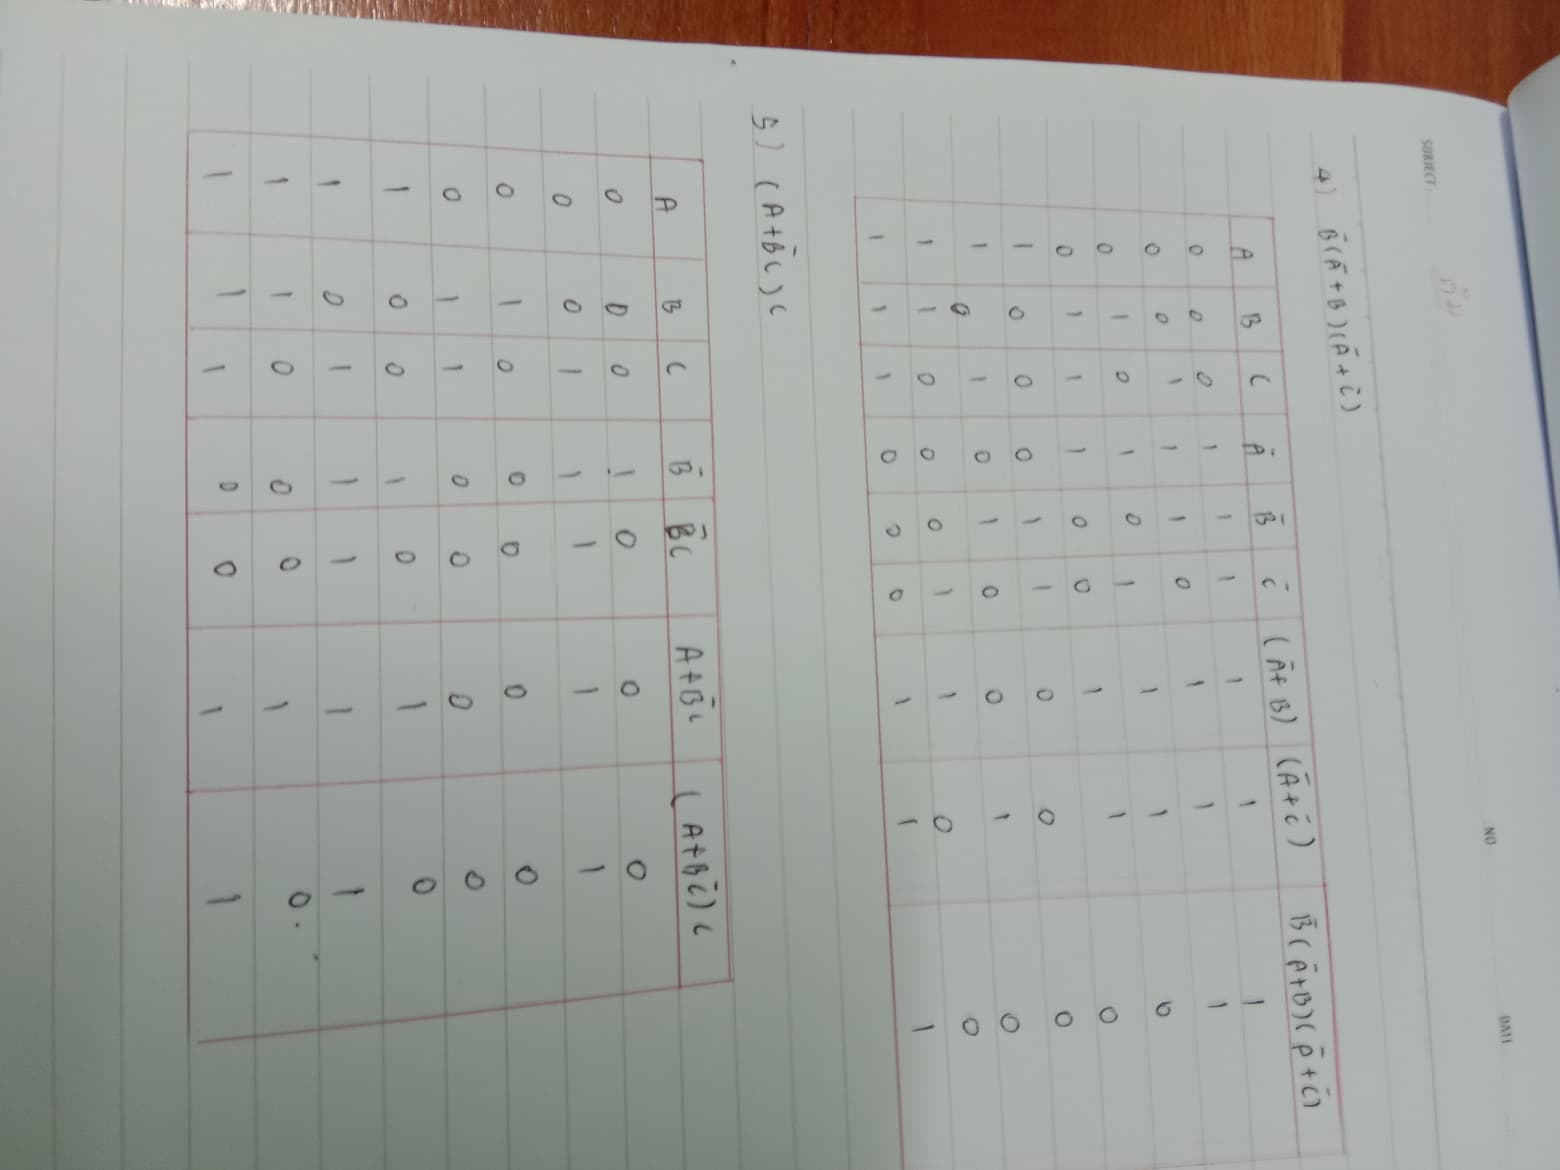 SUBJECT :
NO
DATE
4) B̄(Ā+B)(Ā+C̄)
A B C Ā B̄ C̄ (Ā+B) (Ā+C̄) B̄(Ā+B)(Ā+C̄)
0 0 0 1 1 1 1 1 1
0 0 1 1 1 0 1 1 1
0 1 0 1 0 1 1 1 0
0 1 1 1 0 0 1 1 0
1 0 0 0 1 1 0 0 0
1 0 1 0 1 0 0 1 0
1 1 0 0 0 1 1 0 0
1 1 1 0 0 0 1 1 1
5) (A+B̄C)C
A B C B̄ B̄C A+B̄C (A+B̄C)C
0 0 0 1 0 0 0
0 0 1 1 1 1 1
0 1 0 0 0 0 0
0 1 1 0 0 0 0
1 0 0 1 0 1 0
1 0 1 1 1 1 1
1 1 0 0 0 1 0.
1 1 1 0 0 1 1